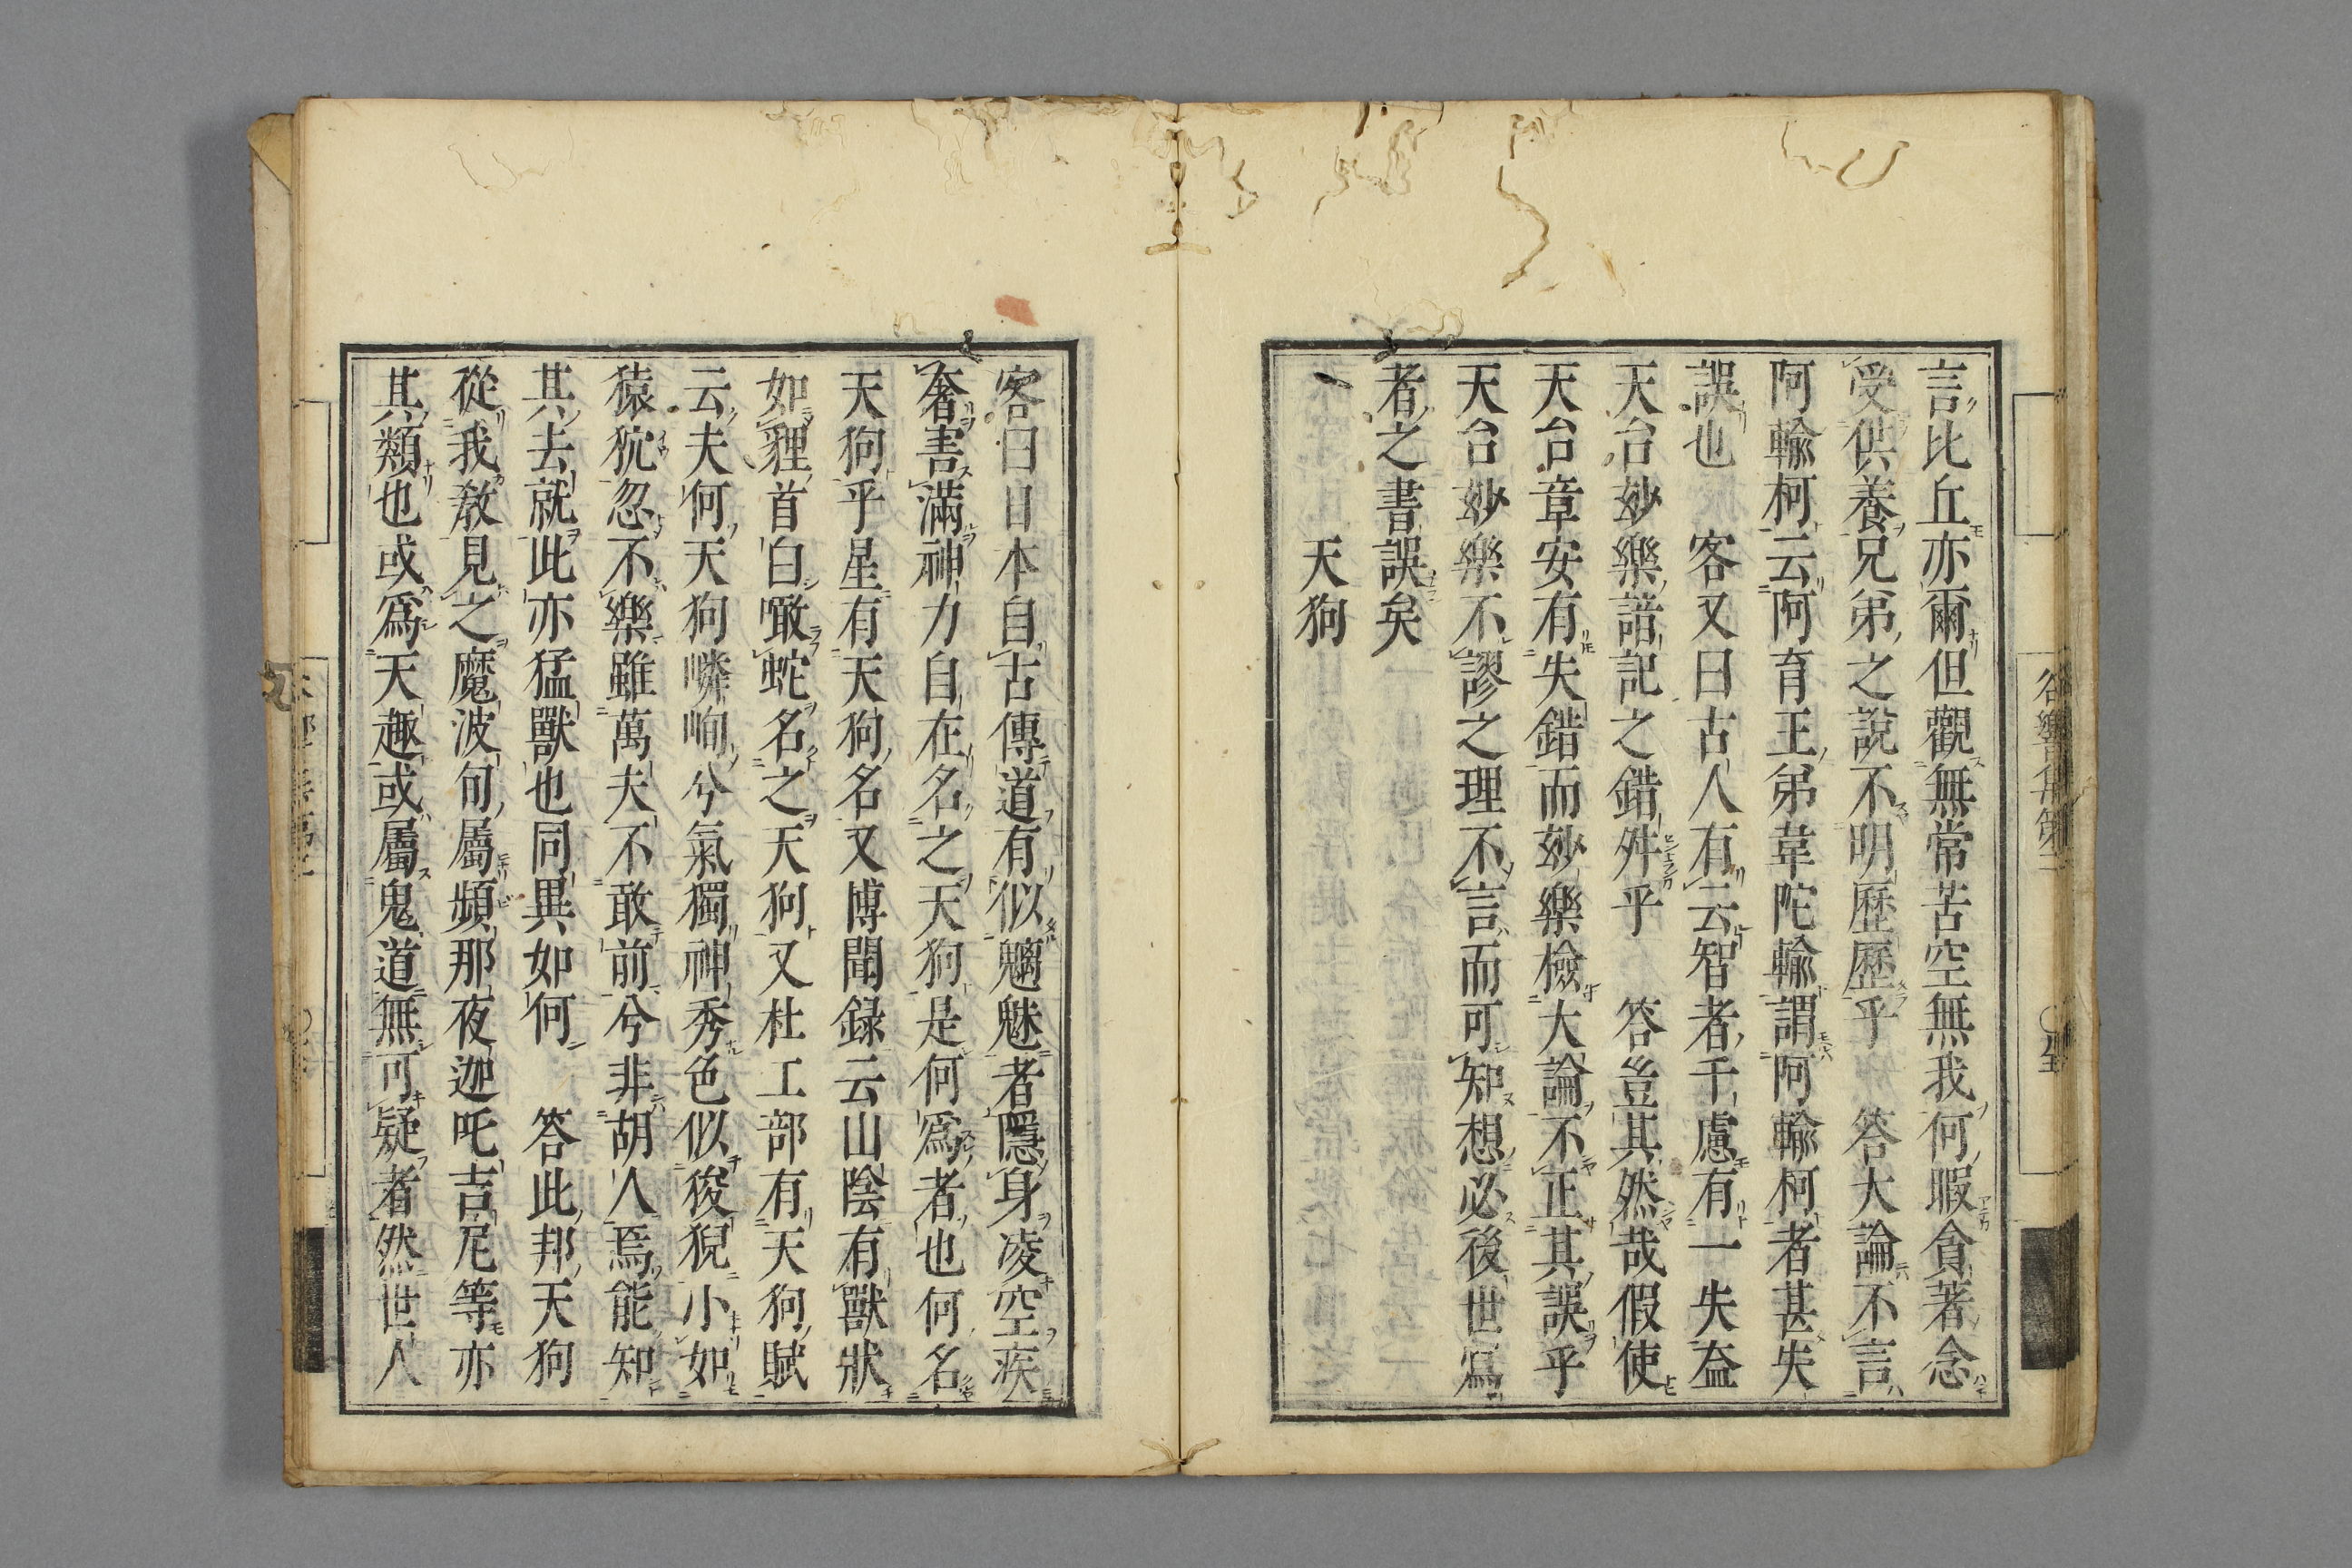 言比丘亦爾但觀無常苦空無我何暇貪著念
受供養兄弟之說不明歷歷乎　答大論不言
阿輸柯云阿育王弟韋陀輸謂阿輸柯者甚失
誤也　客又曰古人有云智者千慮有一失益
天台妙樂諳記之錯舛乎　答豈其然哉假使
天台章安有失錯而妙樂檢大論不正其誤乎
天台妙樂不謬之理不言而可知想必後世寫
者之書誤矣
天狗
客曰日本自古傳道有似魑魅者隱身凌空疾
奢害滿神力自在名之天狗是何爲者也何名
天狗乎星有天狗名又博聞録云山陰有獸狀
如貍首白噉蛇名之天狗又杜工部有天狗賦
云夫何天狗嶙峋兮氣獨神秀色似狻猊小如
猿狖忽不樂雖萬夫不敢前兮非胡人焉能知
其去就此亦猛獸也同異如何　答此邦天狗
從我教見之魔波旬屬頻那夜迦吒吉尼等亦
其類也或爲天趣或屬鬼道無可疑者然世人
谷響集第二